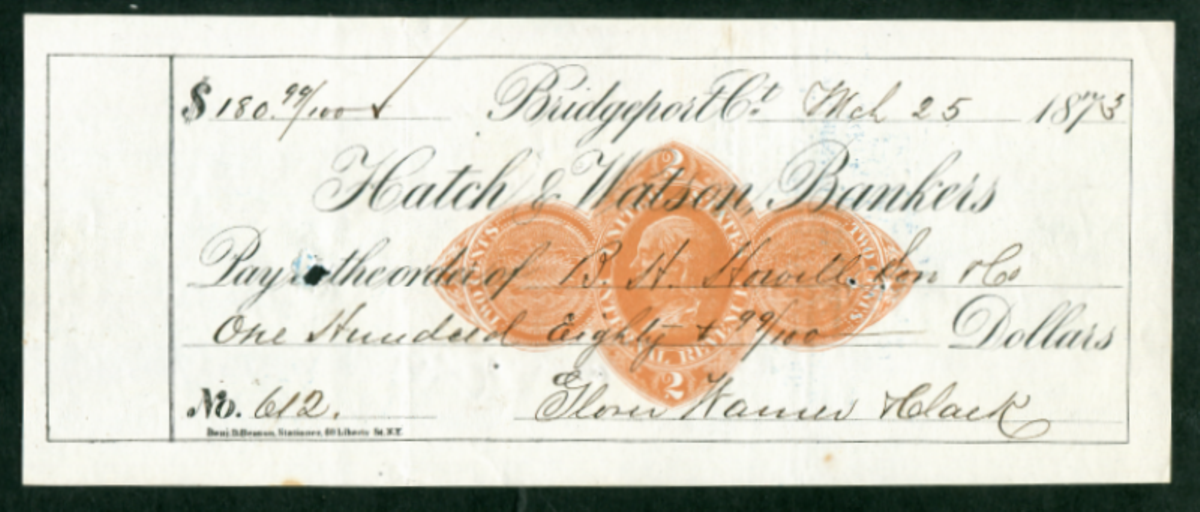 $ 180.99/100 Bridgeport Ct. Mch 25 1873
Hatch & Watson, Bankers
Pay to the order of B. H. Howell Son & Co
One Hundred Eighty & 99/100 Dollars
No. 612. Glover Warner & Clark
Stationer, Liberty St. N.Y.
2
UNITED INTERNAL REVENUE
TWO CENTS
TWO CENTS
2